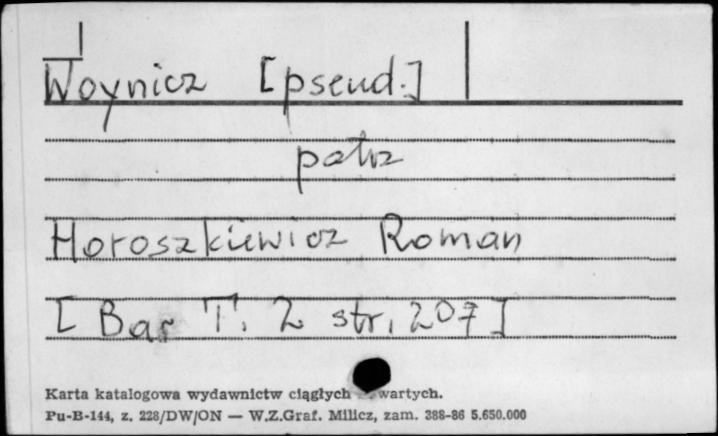 Woynicz [pseud.]
patrz
Horoszkiewicz Roman
[Bar T. 2 str. 207]
Karta katalogowa wydawnictw ciągłych wartych.
Pu-B-144, z. 228/DW/ON — W.Z.Graf. Milicz, zam. 388-86 5.650.000